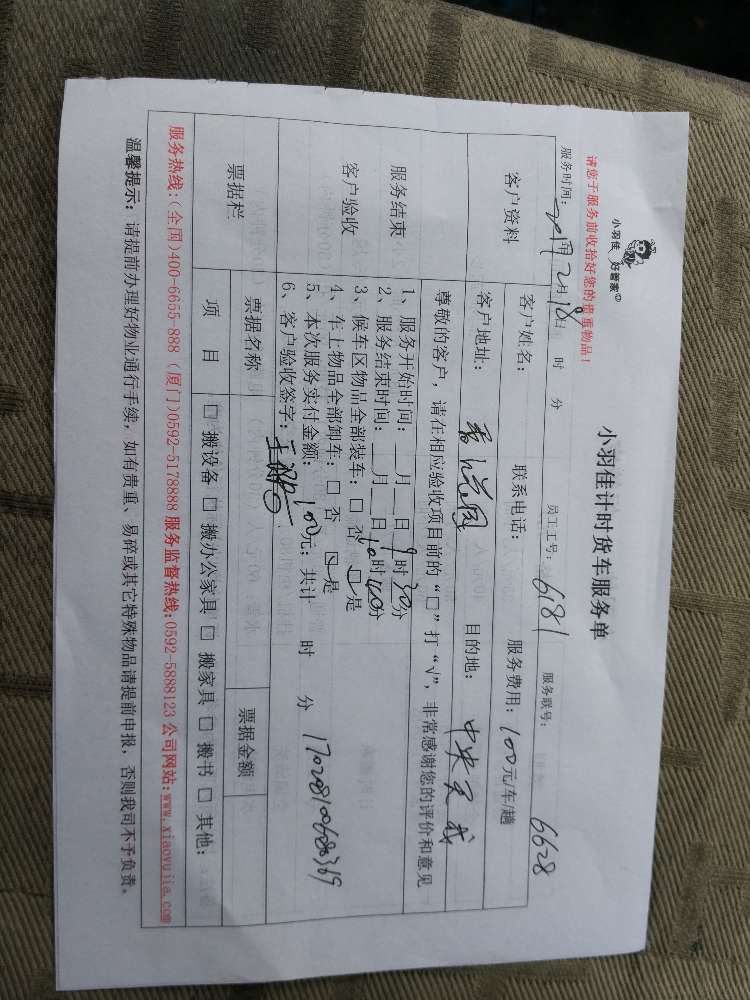 小羽佳 好管家
小羽佳计时货车服务单
请您于服务前收拾好您的贵重物品！
服务时间：2017年2月18日 时 分 员工工号：6181 服务联号：6628
客户资料
客户姓名： 联系电话： 服务费用：100元/车/趟
客户地址： 目的地：中央
尊敬的客户，请在相应验收项目前的“□”打“√”，非常感谢您的评价和意见
服务结束
客户验收
1、服务开始时间：__月__日9时30分
2、服务结束时间：__月__日10时40分
3、候车区物品全部装车：□ 否 ☑是
4、车上物品全部卸车：□ 否 ☑是
5、本次服务实付金额：100元；共计 时 分
6、客户验收签字：
票据栏 票据名称 票据金额
项 目 □ 搬设备 □ 搬办公家具 □ 搬家具 □ 搬书 □ 其他：
服务热线：(全国)400-6655-888 (厦门)0592-5178888 服务监督热线：0592-5888123 公司网站：www.xiaoyujia.com
温馨提示：请提前办理好物业通行手续，如有贵重、易碎或其它特殊物品请提前申报，否则我司不予负责。